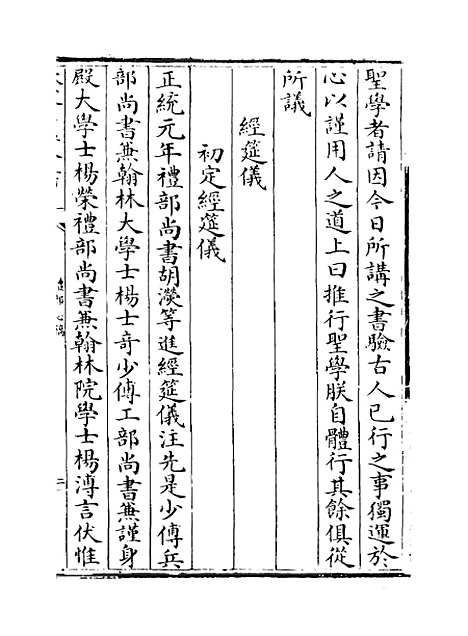 聖學者請因今日所講之書驗古人已行之事獨運於
心以謹用人之道上曰推行聖學朕自體行其餘俱從
所議
經筵儀
初定經筵儀
正統元年禮部尚書胡濙等進經筵儀注先是少傅兵
部尚書兼翰林大學士楊士奇少傅工部尚書兼謹身
殿大學士楊榮禮部尚書兼翰林院學士楊溥言伏惟
二